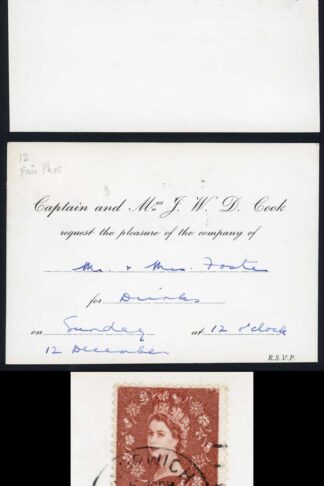 12
Fair Phos
Captain and Mrs J. W. D. Cook
request the pleasure of the company of
Mr. + Mrs. Foster
for Drinks
on Sunday at 12 o'clock
12 December
R.S.V.P.